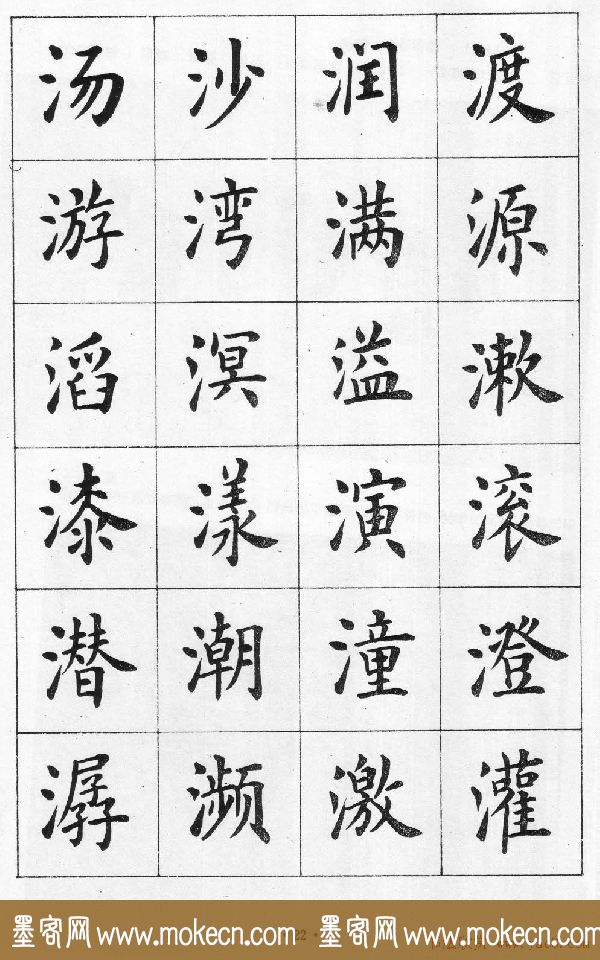 汤 沙 润 渡
游 湾 满 源
滔 溟 溢 漱
漆 漾 演 滚
潜 潮 潼 澄
潺 濒 激 灌
墨客网 www.mokecn.com 墨客网 www.mokecn.com